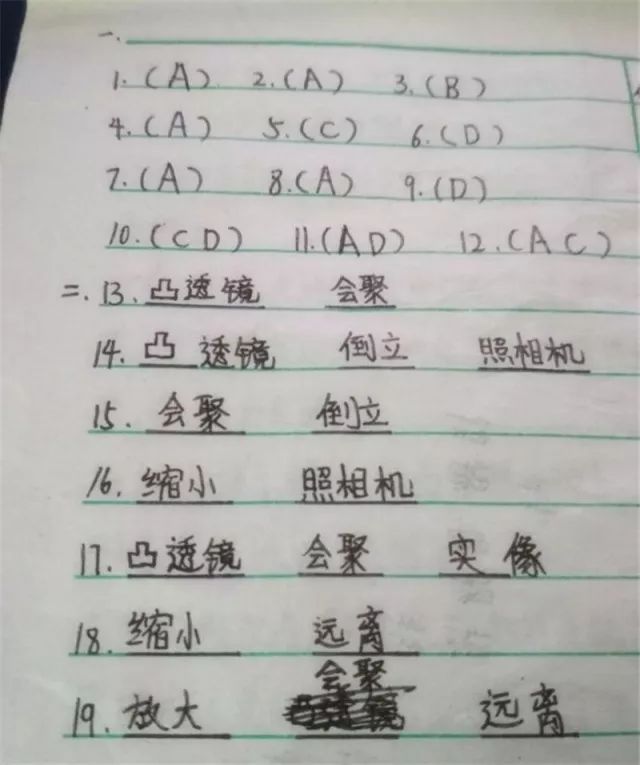 一.
1.(A) 2.(A) 3.(B)
4.(A) 5.(C) 6.(D)
7.(A) 8.(A) 9.(D)
10.(CD) 11.(AD) 12.(AC)
二.13.凸透镜 会聚
14.凸透镜 倒立 照相机
15.会聚 倒立
16.缩小 照相机
17.凸透镜 会聚 实像
18.缩小 远离
19.放大 会聚 远离